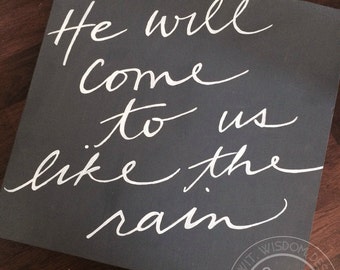 He will
come
to us
like the
rain
WIT. WISDOM.